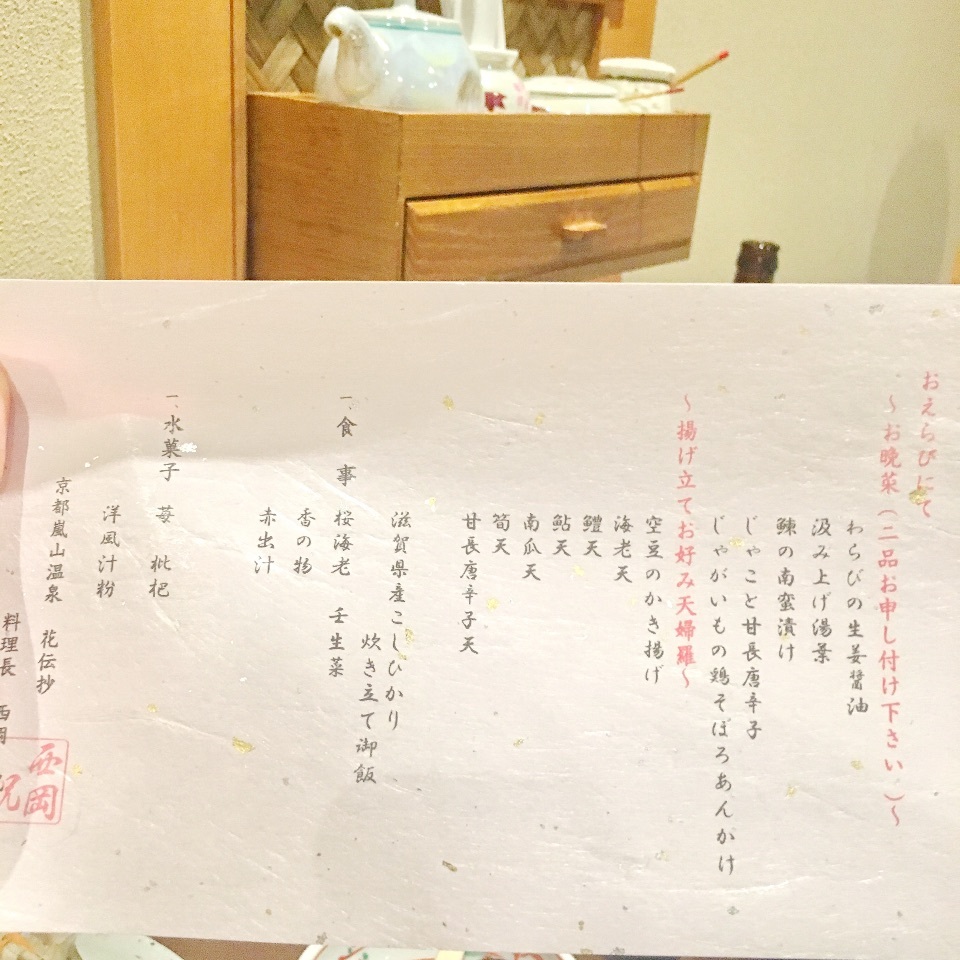 おえらびにて
～お晩菜（二品お申し付け下さい）～
わらびの生姜醤油
汲み上げ湯葉
鰊の南蛮漬け
じゃこと甘長唐辛子
じゃがいもの鶏そぼろあんかけ
～揚げ立てお好み天婦羅～
空豆のかき揚げ
海老天
鱧天
鮎天
南瓜天
筍天
甘長唐辛子天
滋賀県産こしひかり
炊き立て御飯
一、食 事 桜海老 壬生菜
香の物
赤出汁
一、水菓子 苺 枇杷
洋風汁粉
京都嵐山温泉 花伝抄
料理長 西岡
西岡